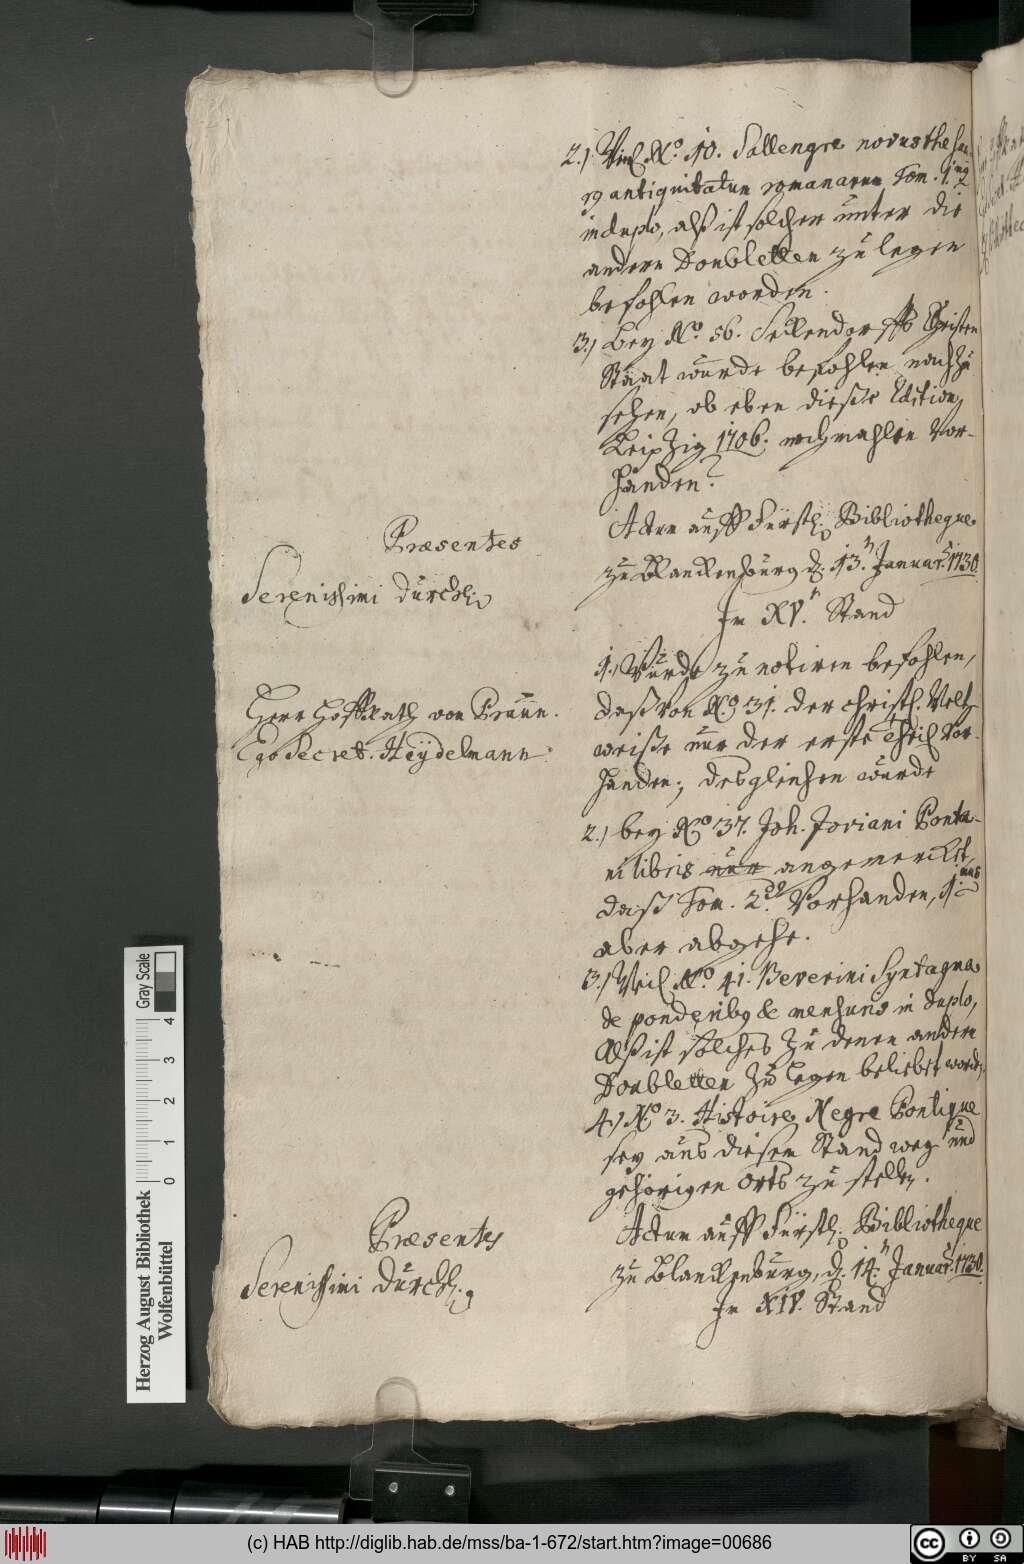 2.) Weil No. 10. Sallengre novus thesau-
rg antiquitatum romanarum Tom. 1.mg
in duplo, alß ist solcher unter die
andern Doubletten zu legen
befohlen worden.
3.) Bey No. 56. Seckendorffs Christen
Staat wurde befohlen nachzu
sehen, ob eben dieße Edition
Leipzig 1706. nochmahlen vor-
handen?
Actum auff Fürstl. Bibliotheque
zu Blanckenburg d. 13.n Januar. 1730.
Præsentes
Serenissimi Durchl.
In XV.n Stand
1.) Wurde zu notiren befohlen,
daß von No. 31. der christl. Welt-
Herr Hoffrath von Praun.
weiße nur der erste Theil vor-
Ego Secret. Heydelmann
handen; desgleichen wurde
2.) bey No 37. Joh. Joviani Ponta-
ni libris nur angemerckt,
daß Tom. 2.dg vorhanden, 1.mus
aber abgehe.
3.) Weil No. 41. Beverini Syntagma
de ponderibg & mensuris in duplo,
Alß ist solches zu denen andern
Doubletten zu legen beliebet worden.
4.) No. 3. Histoire Negre Pontique
sey aus diesem Stand weg und
gehörigen Orts zu stellen.
Actum auff Fürstl. Bibliotheque
Præsentes
zu Blanckenburg, d. 14.n Januar. 1730.
Serenissimi Durchl.
In XIV. Stand
Gray Scale
0 1 2 3 4
Herzog August Bibliothek
Wolfenbüttel
(c) HAB http://diglib.hab.de/mss/ba-1-672/start.htm?image=00686
cc BY SA